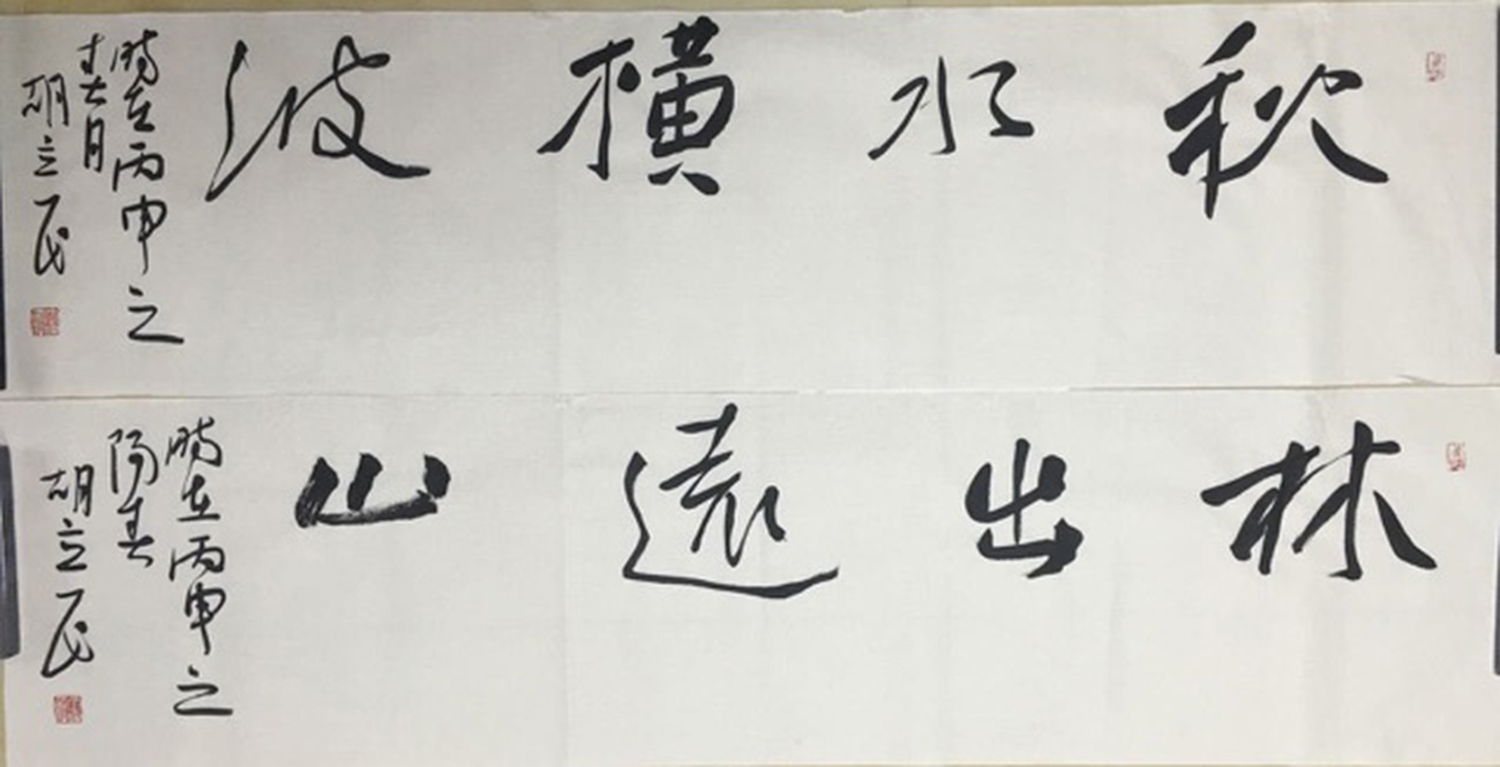 秋水橫波
時在丙申之
春月
胡立民
林出遠山
時在丙申之
陽春
胡立民